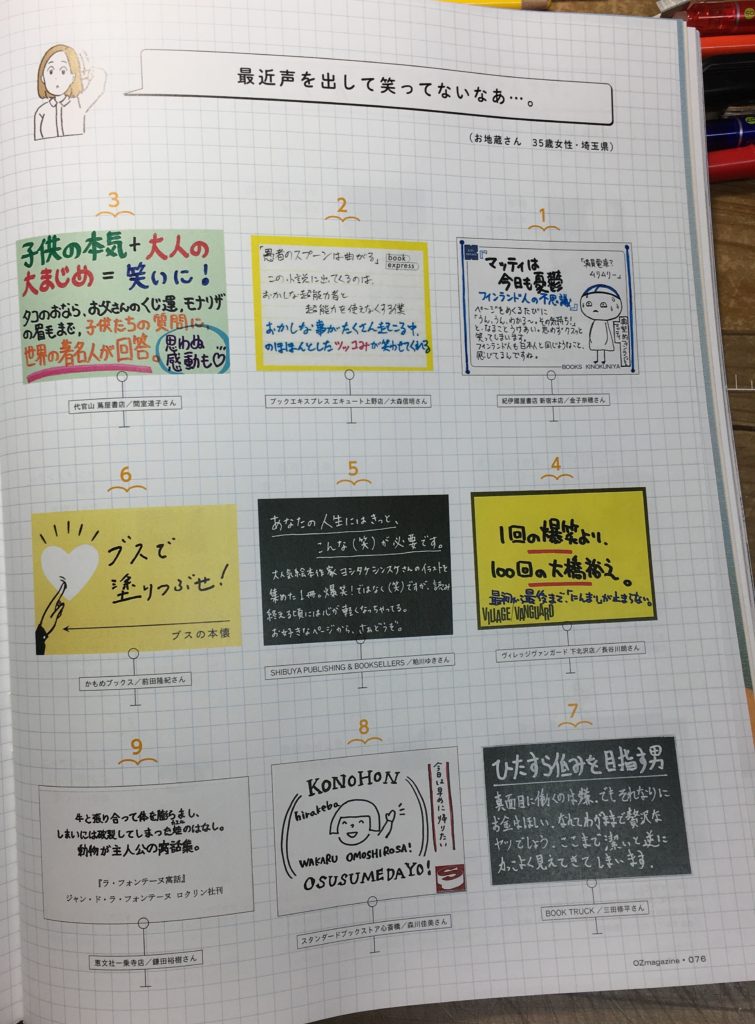 最近声を出して笑ってないなあ…。
（お地蔵さん　35歳女性・埼玉県）
1
『マッティは
今日も憂鬱
フィンランド人の不思議』
「満員電車で
ムリムリー。」
ページをめくるたびに
「うん、うん、わかる〜、その気持ち！」
となることうけあい。思わずクスッと
笑ってしまいます。
フィンランド人も日本人と同じようなこと、
感じてるんですね。
BOOKS KINOKUNIYA
紀伊國屋書店 新宿本店／金子奈穂さん
2
「愚者のスプーンは曲がる」
book express
この小説に出てくるのは、
おかしな超能力者と
超能力を使えなくする僕
おかしな事がたくさん起こる中、
のほほんとしたツッコみが笑わせてくれる
ブックエキスプレス エキュート上野店／大森信晴さん
3
子供の本気＋大人の
大まじめ＝笑いに！
タコのおなら、お父さんのくじ運、モナリザ
の眉もまで、子供たちの質問に、
世界の著名人が回答。
思わぬ
感動も♡
代官山 蔦屋書店／間室道子さん
4
1回の爆笑より、
100回の大橋裕之。
最初から最後まで、「にんまり」が止まらない。
VILLAGE VANGUARD
ヴィレッジヴァンガード 下北沢店／長谷川朗さん
5
あなたの人生にはきっと、
こんな（笑）が必要です。
大人気絵本作家ヨシタケシンスケさんのイラストを
集めた1冊。爆笑！ではなく（笑）ですが、読み
終える頃には心が軽くなっちゃってる。
お好きなページから、さぁどうぞ。
SHIBUYA PUBLISHING & BOOKSELLERS／粕川ゆきさん
6
ブスで
塗りつぶせ！
ブスの本懐
かもめブックス／前田隆紀さん
7
ひたすら低みを目指す男
真面目に働くのは嫌。でもそれなりに
お金はほしい、なんてわがままで贅沢な
ヤツでしょう。ここまで潔いと逆に
かっこよく見えてきてしまいます。
BOOK TRUCK／三田修平さん
8
KONOHON
hirakeba
WAKARU OMOSHIROSA!
OSUSUMEDAYO!
今日は早めに帰りたい
スタンダードブックストア心斎橋／森川佳美さん
9
牛と張り合って体を膨らまし、
しまいには破裂してしまった蛙のはなし。
動物が主人公の寓話集。
『ラ・フォンテーヌ寓話』
ジャン・ド・ラ・フォンテーヌ ロクリン社刊
恵文社一乗寺店／鎌田裕樹さん
OZmagazine・076